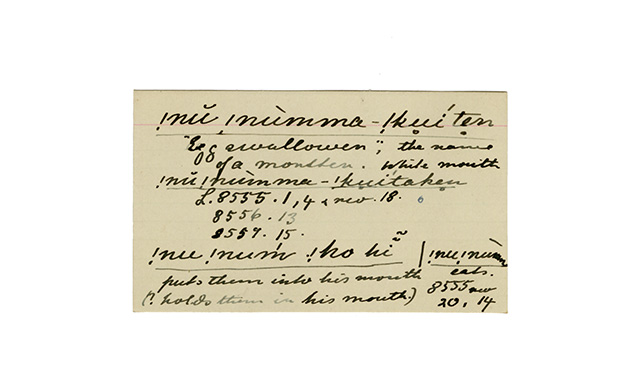 !nŭ !nùmma-!kúï tẹn
"Egg swallower"; the name
of a monster. White mouth
!nŭ !nùmma-!kúïtakẹn
L. 8555. 1, 4 & rev. 18.
8556. 13
8557. 15.
!nu !num !ho hĩ
puts them into his mouth
(? holds them in his mouth.)
!nu !nùm
eats.
8555 rev
20. 14